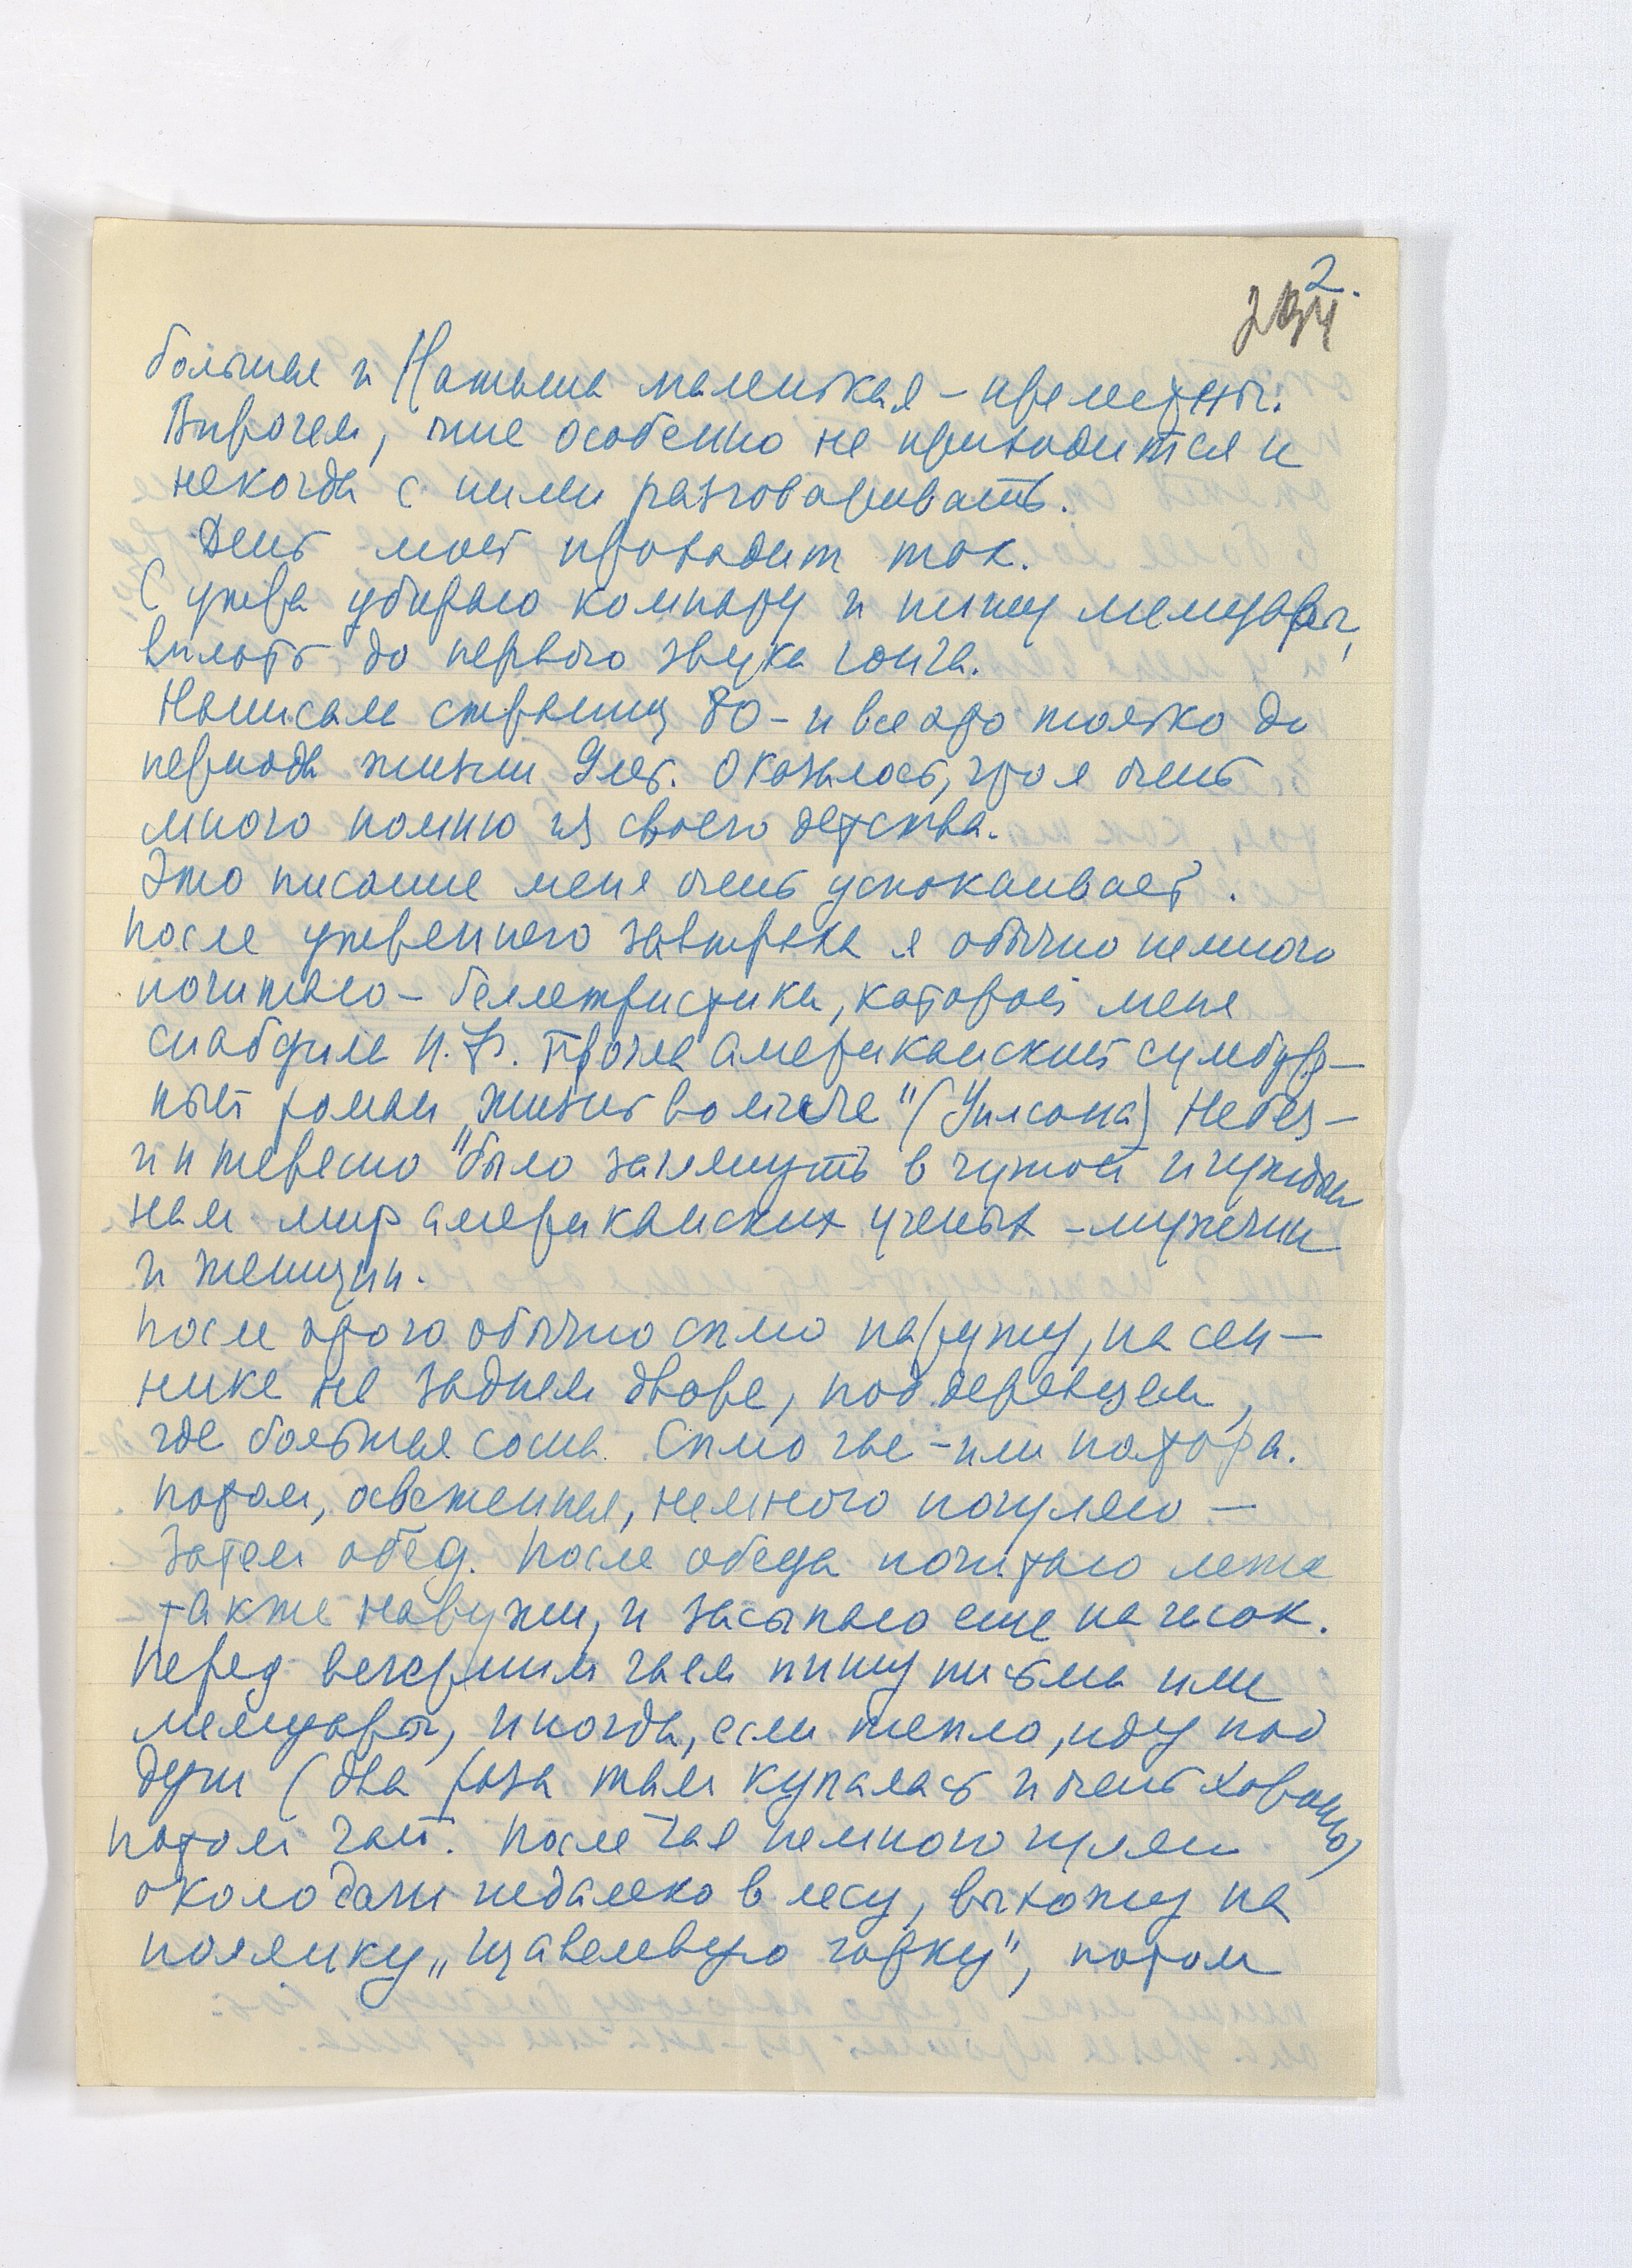 2.
большая и Наташа маленькая – прелестны.
Впрочем, мне особенно не приходится и
некогда с ними разговаривать.
День мой проходит так.
С утра убираю комнату и пишу мемуары,
вплоть до первого звука гонга.
Написала страниц 80 – и все это только до
периода жизни 9 лет. Оказалось, что я очень
много помню из своего детства.
Это писание меня очень успокаивает.
После утреннего завтрака я обычно немного
почитаю – беллетристики, которой меня
снабдила Н.Ф. Прочла американский сумбур–
ный роман „Жизнь во мгле" (Уилсона) Небез–
интересно было заглянуть в чужой и чуждый
нам мир американских ученых – мужчин
и женщин.
После этого обычно сплю наружу, на сен–
нике на заднем дворе, под деревцем,
где большая сосна. Сплю час – или полтора.
Потом, освеженная, немного погуляю –
Затем обед. После обеда почитаю лежа
также наружи, и засыпаю еще на часок.
Перед вечерним чаем пишу письма или
мемуары, иногда, если тепло, иду под
душ (два раза там купалась и очень хорошо)
Потом чай. После чая немного гуляю
около дачи недалеко в лесу, выхожу на
полянку „щавелевую горку", потом